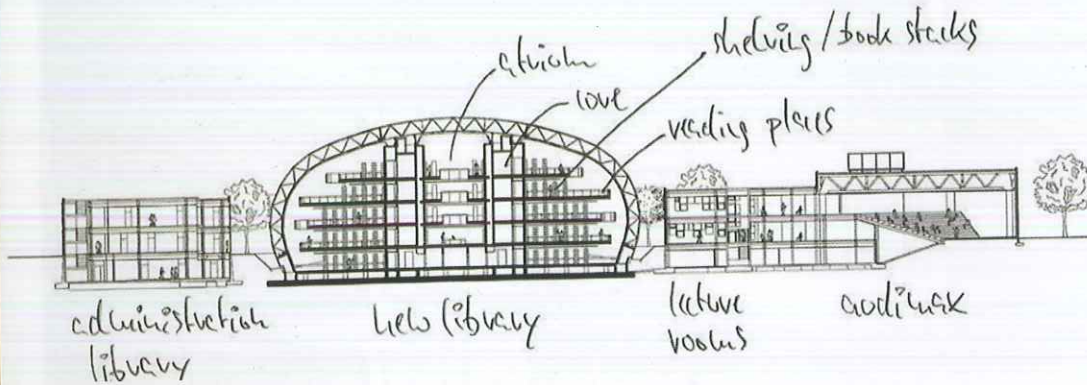 atrium
core
shelving/book stacks
reading places
administration
library
new library
lecture
rooms
audimax